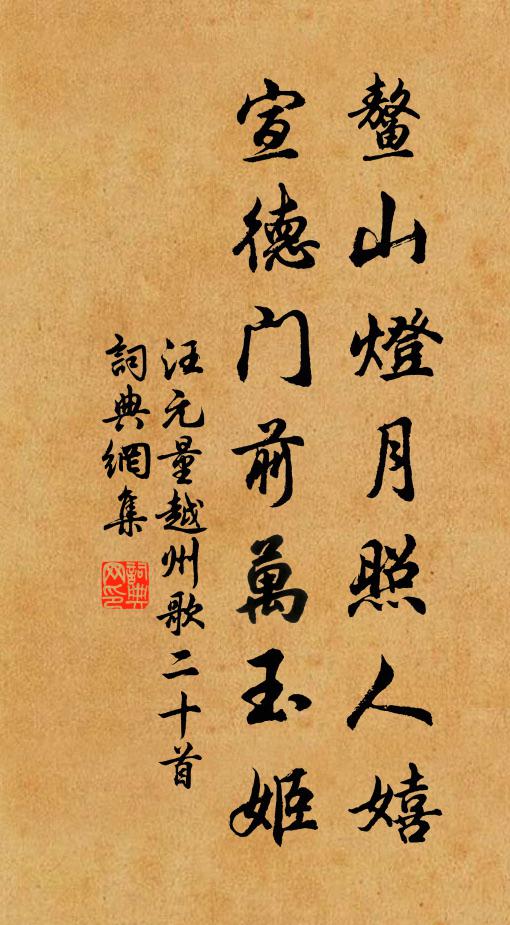 鰲山燈月照人嬉
宣德門前萬玉姬
汪元量越州歌二十首
詞典網集
詞典网印